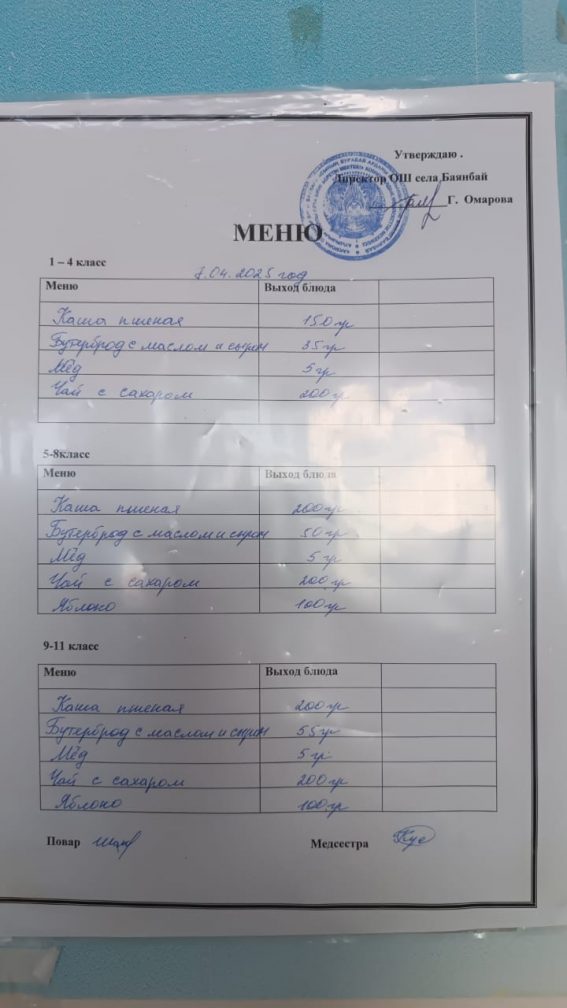 Утверждаю .
Директор ОШ села Баянбай
Г. Омарова
МЕНЮ
1 – 4 класс
8.04.2025 год
Меню Выход блюда
Каша пшеная 150 гр
Бутерброд с маслом и сыром 35 гр
Мёд 5 гр
Чай с сахаром 200 гр
5-8класс
Меню Выход блюда
Каша пшеная 200 гр
Бутерброд с маслом и сыром 50 гр
Мёд 5 гр
Чай с сахаром 200 гр
Яблоко 100 гр
9-11 класс
Меню Выход блюда
Каша пшеная 200 гр
Бутерброд с маслом и сыром 55 гр
Мёд 5 гр
Чай с сахаром 200 гр
Яблоко 100 гр
Повар
Медсестра